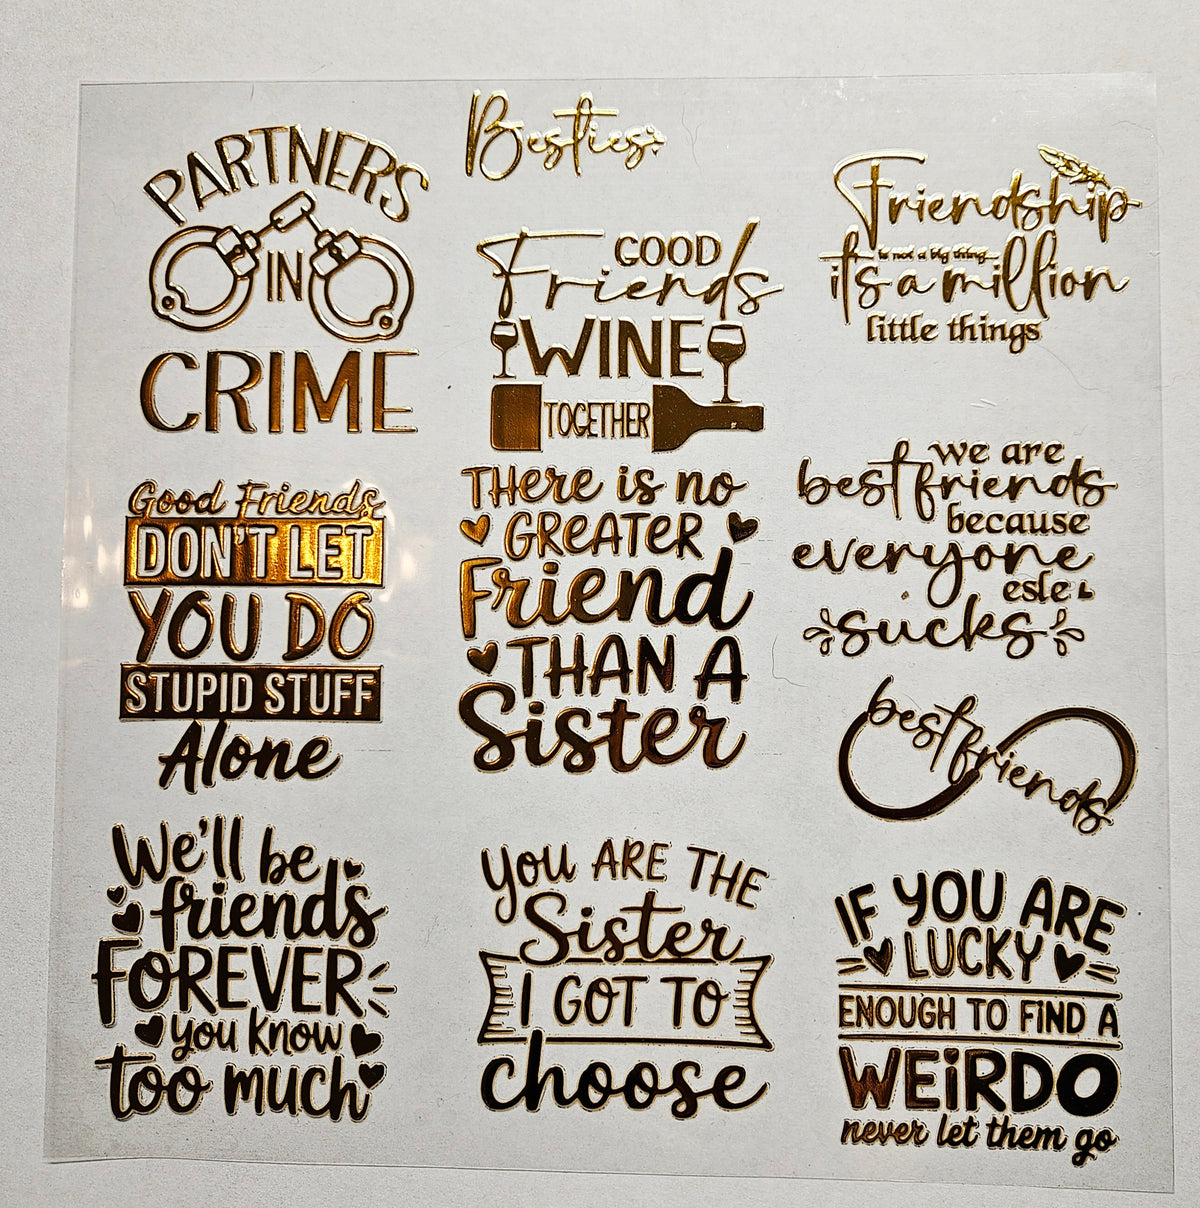 PARTNERS
IN
CRIME
Besties
GOOD
Friends
WINE
TOGETHER
Friendship
is not a big thing
it's a million
little things
Good Friends
DON'T LET
YOU DO
STUPID STUFF
Alone
THere is no
GREATER
Friend
THAN A
Sister
we are
best friends
because
everyone
esle
sucks
best friends
We'll be
friends
FOREVER
you know
too much
you ARE THE
Sister
I GOT TO
choose
IF YOU ARE
LUCKY
ENOUGH TO FiND A
WEiRDO
never let them go